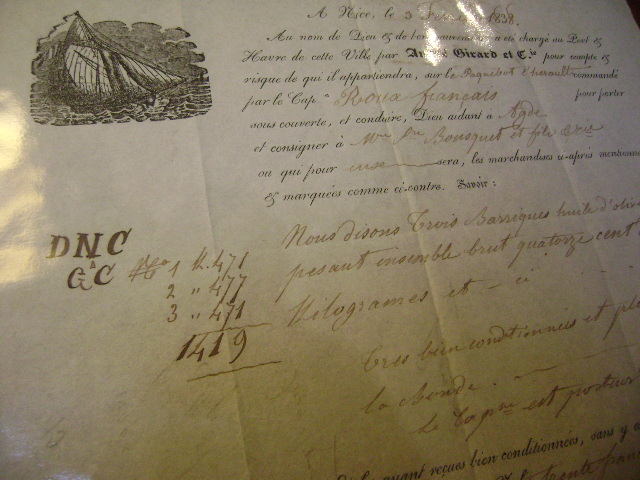 A Nice, le 3 1838.
Au nom de Dieu & de bon sauvement, a été chargé au Port &
Havre de cette Ville par André Girard et C.ie pour compte &
risque de qui il appartiendra, sur le Paquebot l'herault commandé
par le Cap.e Roux français pour porter
sous couverte, et conduire, Dieu aidant à Agde
et consigner à Bousquet et fils
ou qui pour eux sera, les marchandises ci-après mentionnées
& marquées comme ci-contre. Savoir:
DNC
G à C
N.o 1 K. 471
2 " 477
3 " 471
1419
Nous disons Trois Barriques huile d'olive
pesant ensemble brut quatorze cent
Kilogrames et - ci
Tres bien conditionnées et
la bonde.
Le Cap.ne est porteur
reçues bien conditionnées, sans y
trente